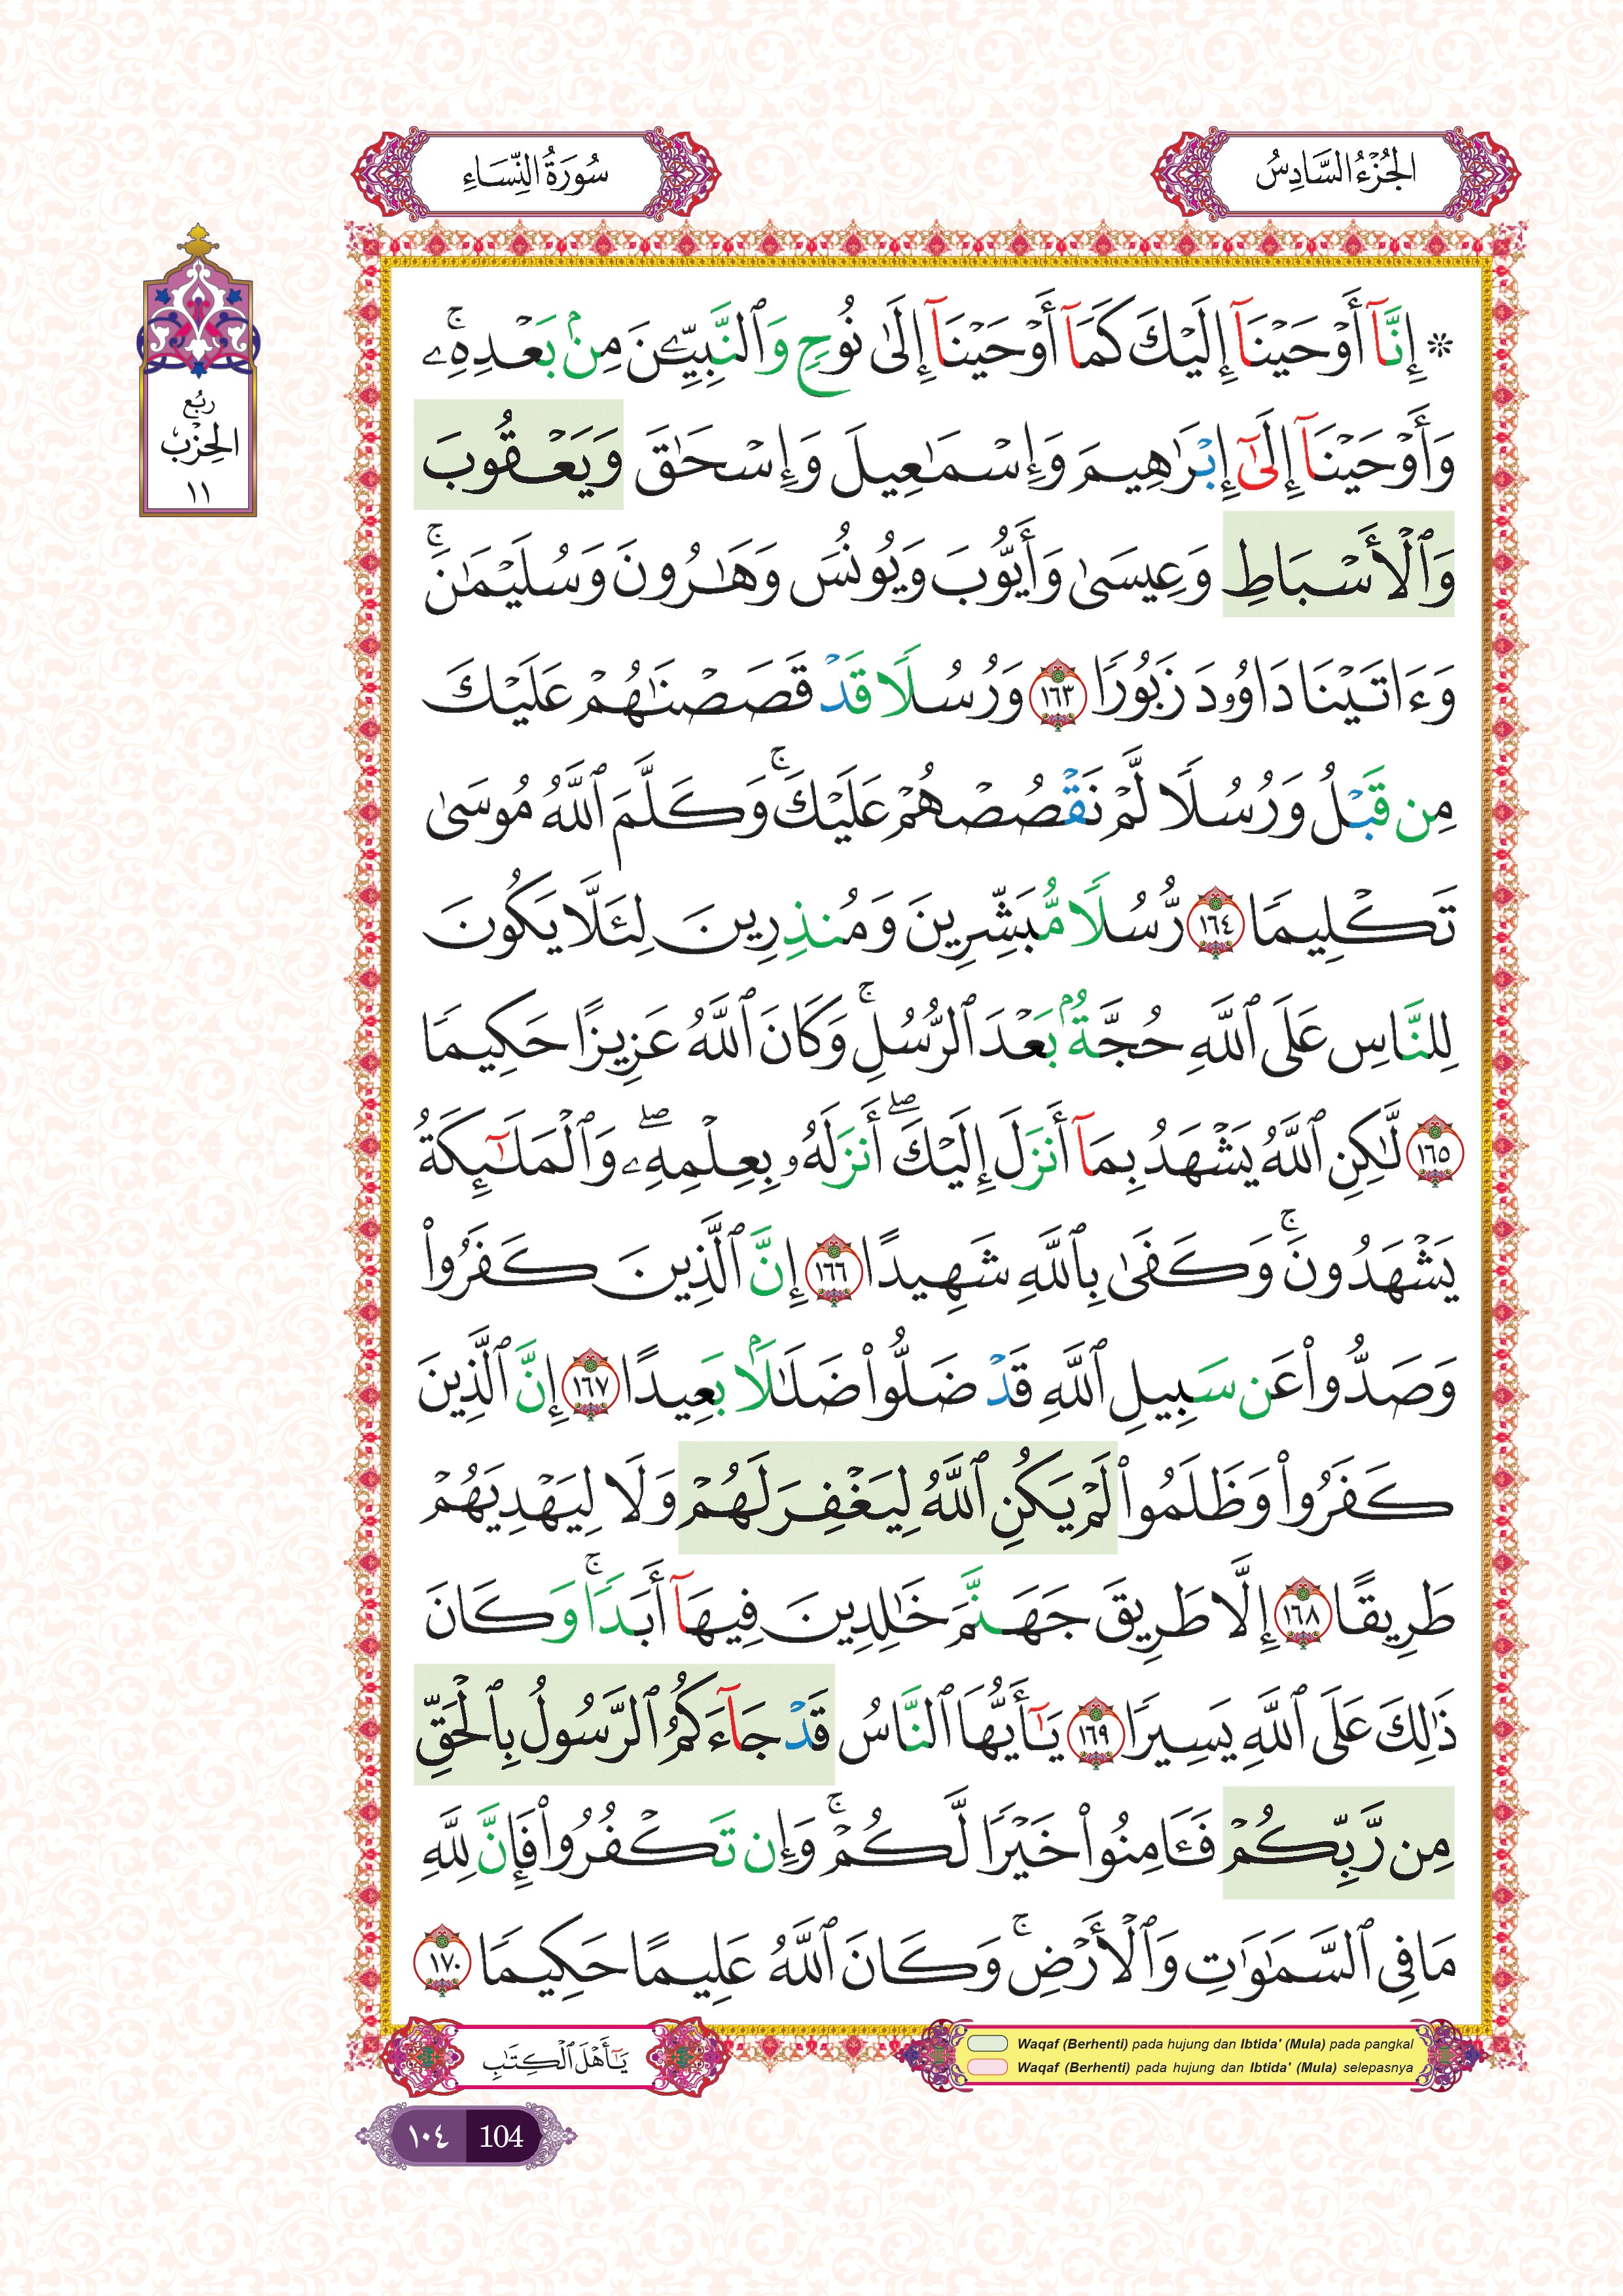 الجُزْءُ السَّادِسُ
سُورَةُ النِّسَاءِ
رُبْع
الحِزْب
١١
۞ إِنَّآ أَوْحَيْنَآ إِلَيْكَ كَمَآ أَوْحَيْنَآ إِلَىٰ نُوحٍ وَٱلنَّبِيِّـۧنَ مِنۢ بَعْدِهِۦۚ
وَأَوْحَيْنَآ إِلَىٰٓ إِبْرَٰهِيمَ وَإِسْمَـٰعِيلَ وَإِسْحَـٰقَ وَيَعْقُوبَ
وَٱلْأَسْبَاطِ وَعِيسَىٰ وَأَيُّوبَ وَيُونُسَ وَهَـٰرُونَ وَسُلَيْمَـٰنَۚ
وَءَاتَيْنَا دَاوُۥدَ زَبُورًا ١٦٣ وَرُسُلًا قَدْ قَصَصْنَـٰهُمْ عَلَيْكَ
مِن قَبْلُ وَرُسُلًا لَّمْ نَقْصُصْهُمْ عَلَيْكَۚ وَكَلَّمَ ٱللَّهُ مُوسَىٰ
تَكْلِيمًا ١٦٤ رُّسُلًا مُّبَشِّرِينَ وَمُنذِرِينَ لِئَلَّا يَكُونَ
لِلنَّاسِ عَلَى ٱللَّهِ حُجَّةٌۢ بَعْدَ ٱلرُّسُلِۚ وَكَانَ ٱللَّهُ عَزِيزًا حَكِيمًا
١٦٥ لَّـٰكِنِ ٱللَّهُ يَشْهَدُ بِمَآ أَنزَلَ إِلَيْكَۖ أَنزَلَهُۥ بِعِلْمِهِۦۖ وَٱلْمَلَـٰٓئِكَةُ
يَشْهَدُونَۚ وَكَفَىٰ بِٱللَّهِ شَهِيدًا ١٦٦ إِنَّ ٱلَّذِينَ كَفَرُوا۟
وَصَدُّوا۟ عَن سَبِيلِ ٱللَّهِ قَدْ ضَلُّوا۟ ضَلَـٰلًۢا بَعِيدًا ١٦٧ إِنَّ ٱلَّذِينَ
كَفَرُوا۟ وَظَلَمُوا۟ لَمْ يَكُنِ ٱللَّهُ لِيَغْفِرَ لَهُمْ وَلَا لِيَهْدِيَهُمْ
طَرِيقًا ١٦٨ إِلَّا طَرِيقَ جَهَنَّمَ خَـٰلِدِينَ فِيهَآ أَبَدًاۚ وَكَانَ
ذَٰلِكَ عَلَى ٱللَّهِ يَسِيرًا ١٦٩ يَـٰٓأَيُّهَا ٱلنَّاسُ قَدْ جَآءَكُمُ ٱلرَّسُولُ بِٱلْحَقِّ
مِن رَّبِّكُمْ فَـَٔامِنُوا۟ خَيْرًا لَّكُمْۚ وَإِن تَكْفُرُوا۟ فَإِنَّ لِلَّهِ
مَا فِى ٱلسَّمَـٰوَٰتِ وَٱلْأَرْضِۚ وَكَانَ ٱللَّهُ عَلِيمًا حَكِيمًا ١٧٠
Waqaf (Berhenti) pada hujung dan Ibtida' (Mula) pada pangkal
Waqaf (Berhenti) pada hujung dan Ibtida' (Mula) selepasnya
يَـٰٓأَهْلَ ٱلْكِتَـٰبِ
١٠٤ 104